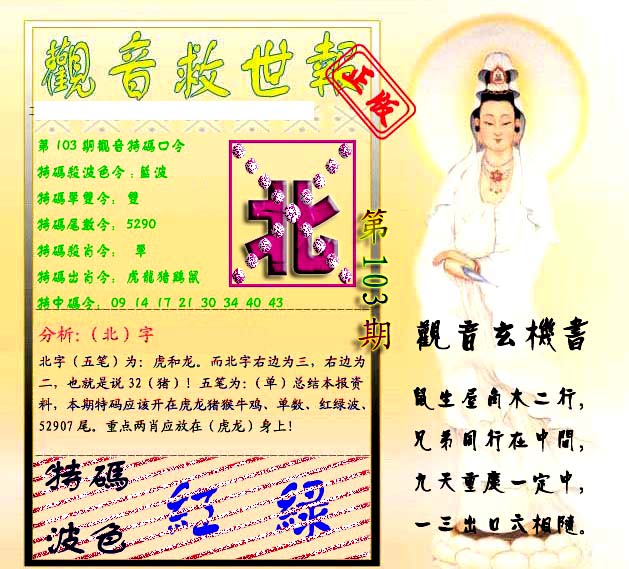 觀音救世報
正版
第103期觀音特碼口令
特碼殺波色令：藍波
特碼單雙令： 雙
特碼尾數令： 5290
特碼殺肖令： 單
特碼出肖令： 虎龍猪鷄鼠
特中碼令： 09 14 17 21 30 34 40 43
北
第103期
分析：（北）字
北字（五笔）为：虎和龙。而北字右边为三，右边为
二，也就是说32（猪）！五笔为：（单）总结本报资
料，本期特码应该开在虎龙猪猴牛鸡、单数、红绿波、
52907尾。重点两肖应放在（虎龙）身上！
特碼
波色
紅 綠
觀音玄機書
鼠生屋角木二行，
兄弟同行在中間，
九天重慶一定中，
一三出口六相隨。